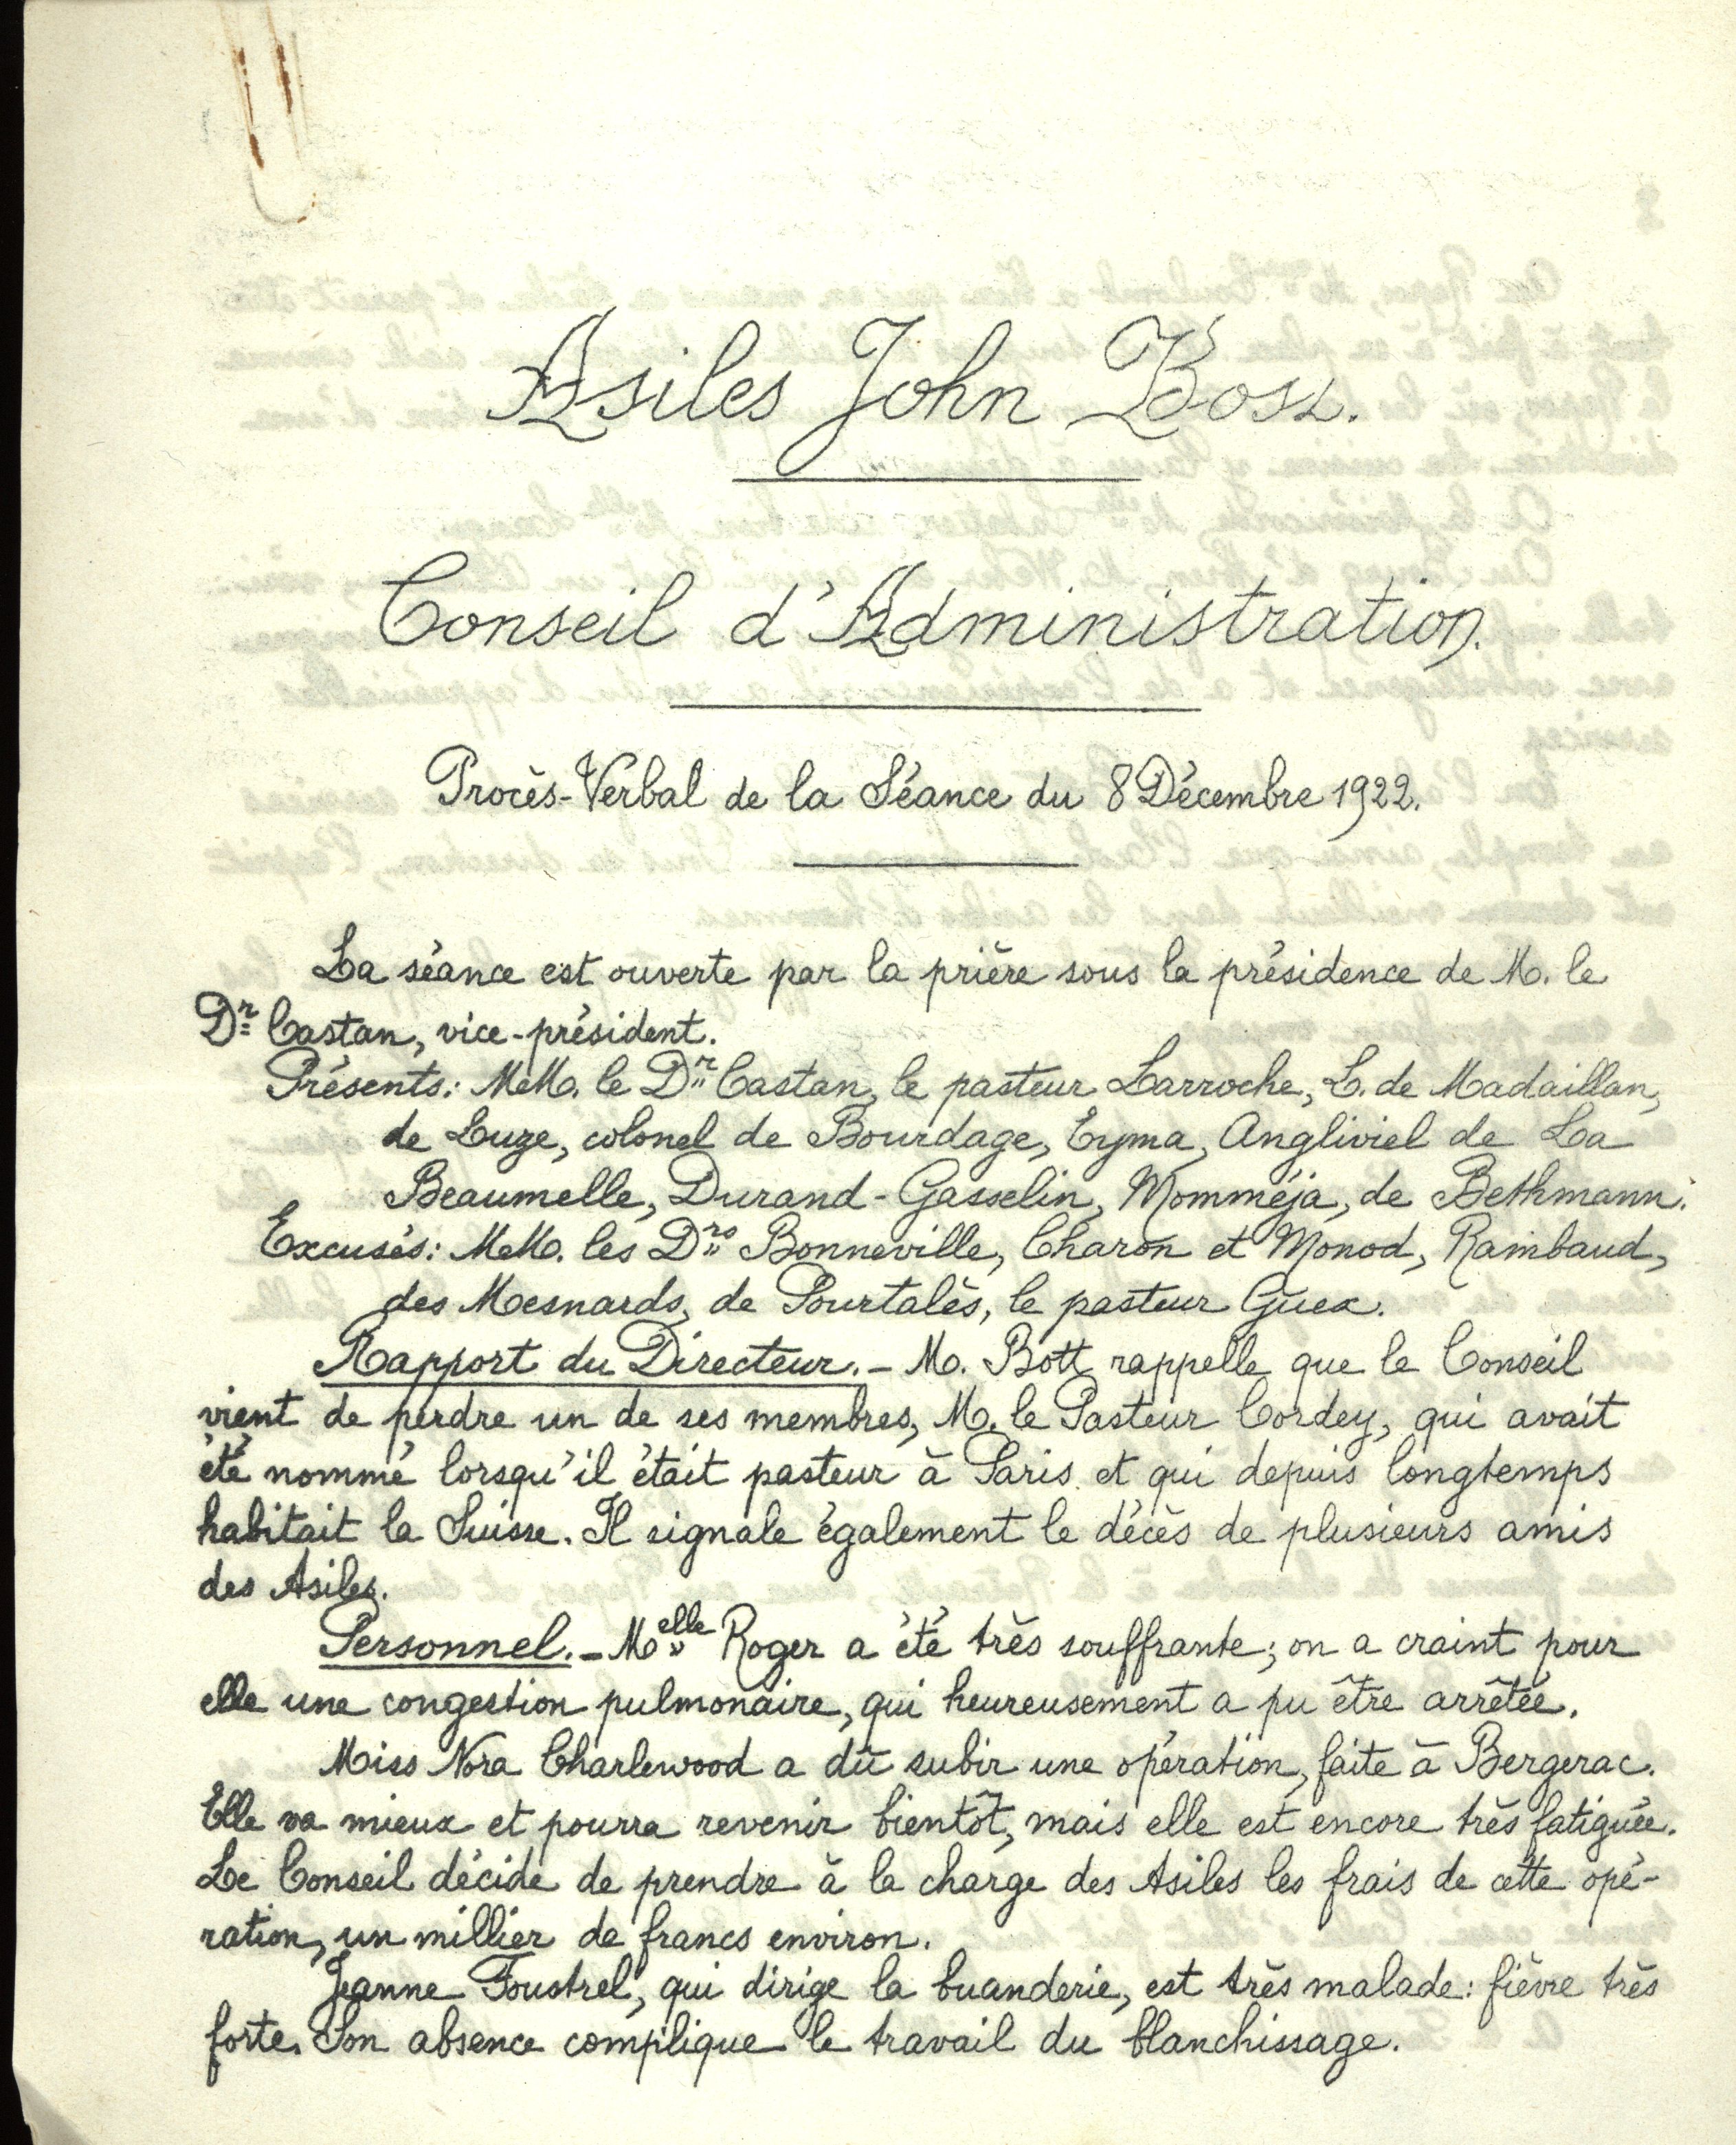 Asiles John Bost.
Conseil d'Administration.
Procès-Verbal de la Séance du 8 Décembre 1922.
La séance est ouverte par la prière sous la présidence de M. le
Dr Castan, vice-président.
Présents: MM. le Dr Castan, le pasteur Larroche, L. de Madaillan,
de Luze, colonel de Bourdage, Eyma, Angliviel de La
Beaumelle, Durand-Gasselin, Momméja, de Bethmann.
Excusés: MM. les Drs Bonneville, Charon et Monod, Rambaud,
des Mesnards, de Pourtalès, le pasteur Guex.
Rapport du Directeur. - M. Bott rappelle que le Conseil
vient de perdre un de ses membres, M. le Pasteur Cordey, qui avait
été nommé lorsqu'il était pasteur à Paris et qui depuis longtemps
habitait la Suisse. Il signale également le décès de plusieurs amis
des Asiles.
Personnel. - Melle Roger a été très souffrante; on a craint pour
elle une congestion pulmonaire, qui heureusement a pu être arrêtée.
Miss Nora Charlewood a dû subir une opération, faite à Bergerac.
Elle va mieux et pourra revenir bientôt, mais elle est encore très fatiguée.
Le Conseil décide de prendre à la charge des Asiles les frais de cette opé-
ration, un millier de francs environ.
Jeanne Foustrel, qui dirige la buanderie, est très malade: fièvre très
forte. Son absence complique le travail du blanchissage.